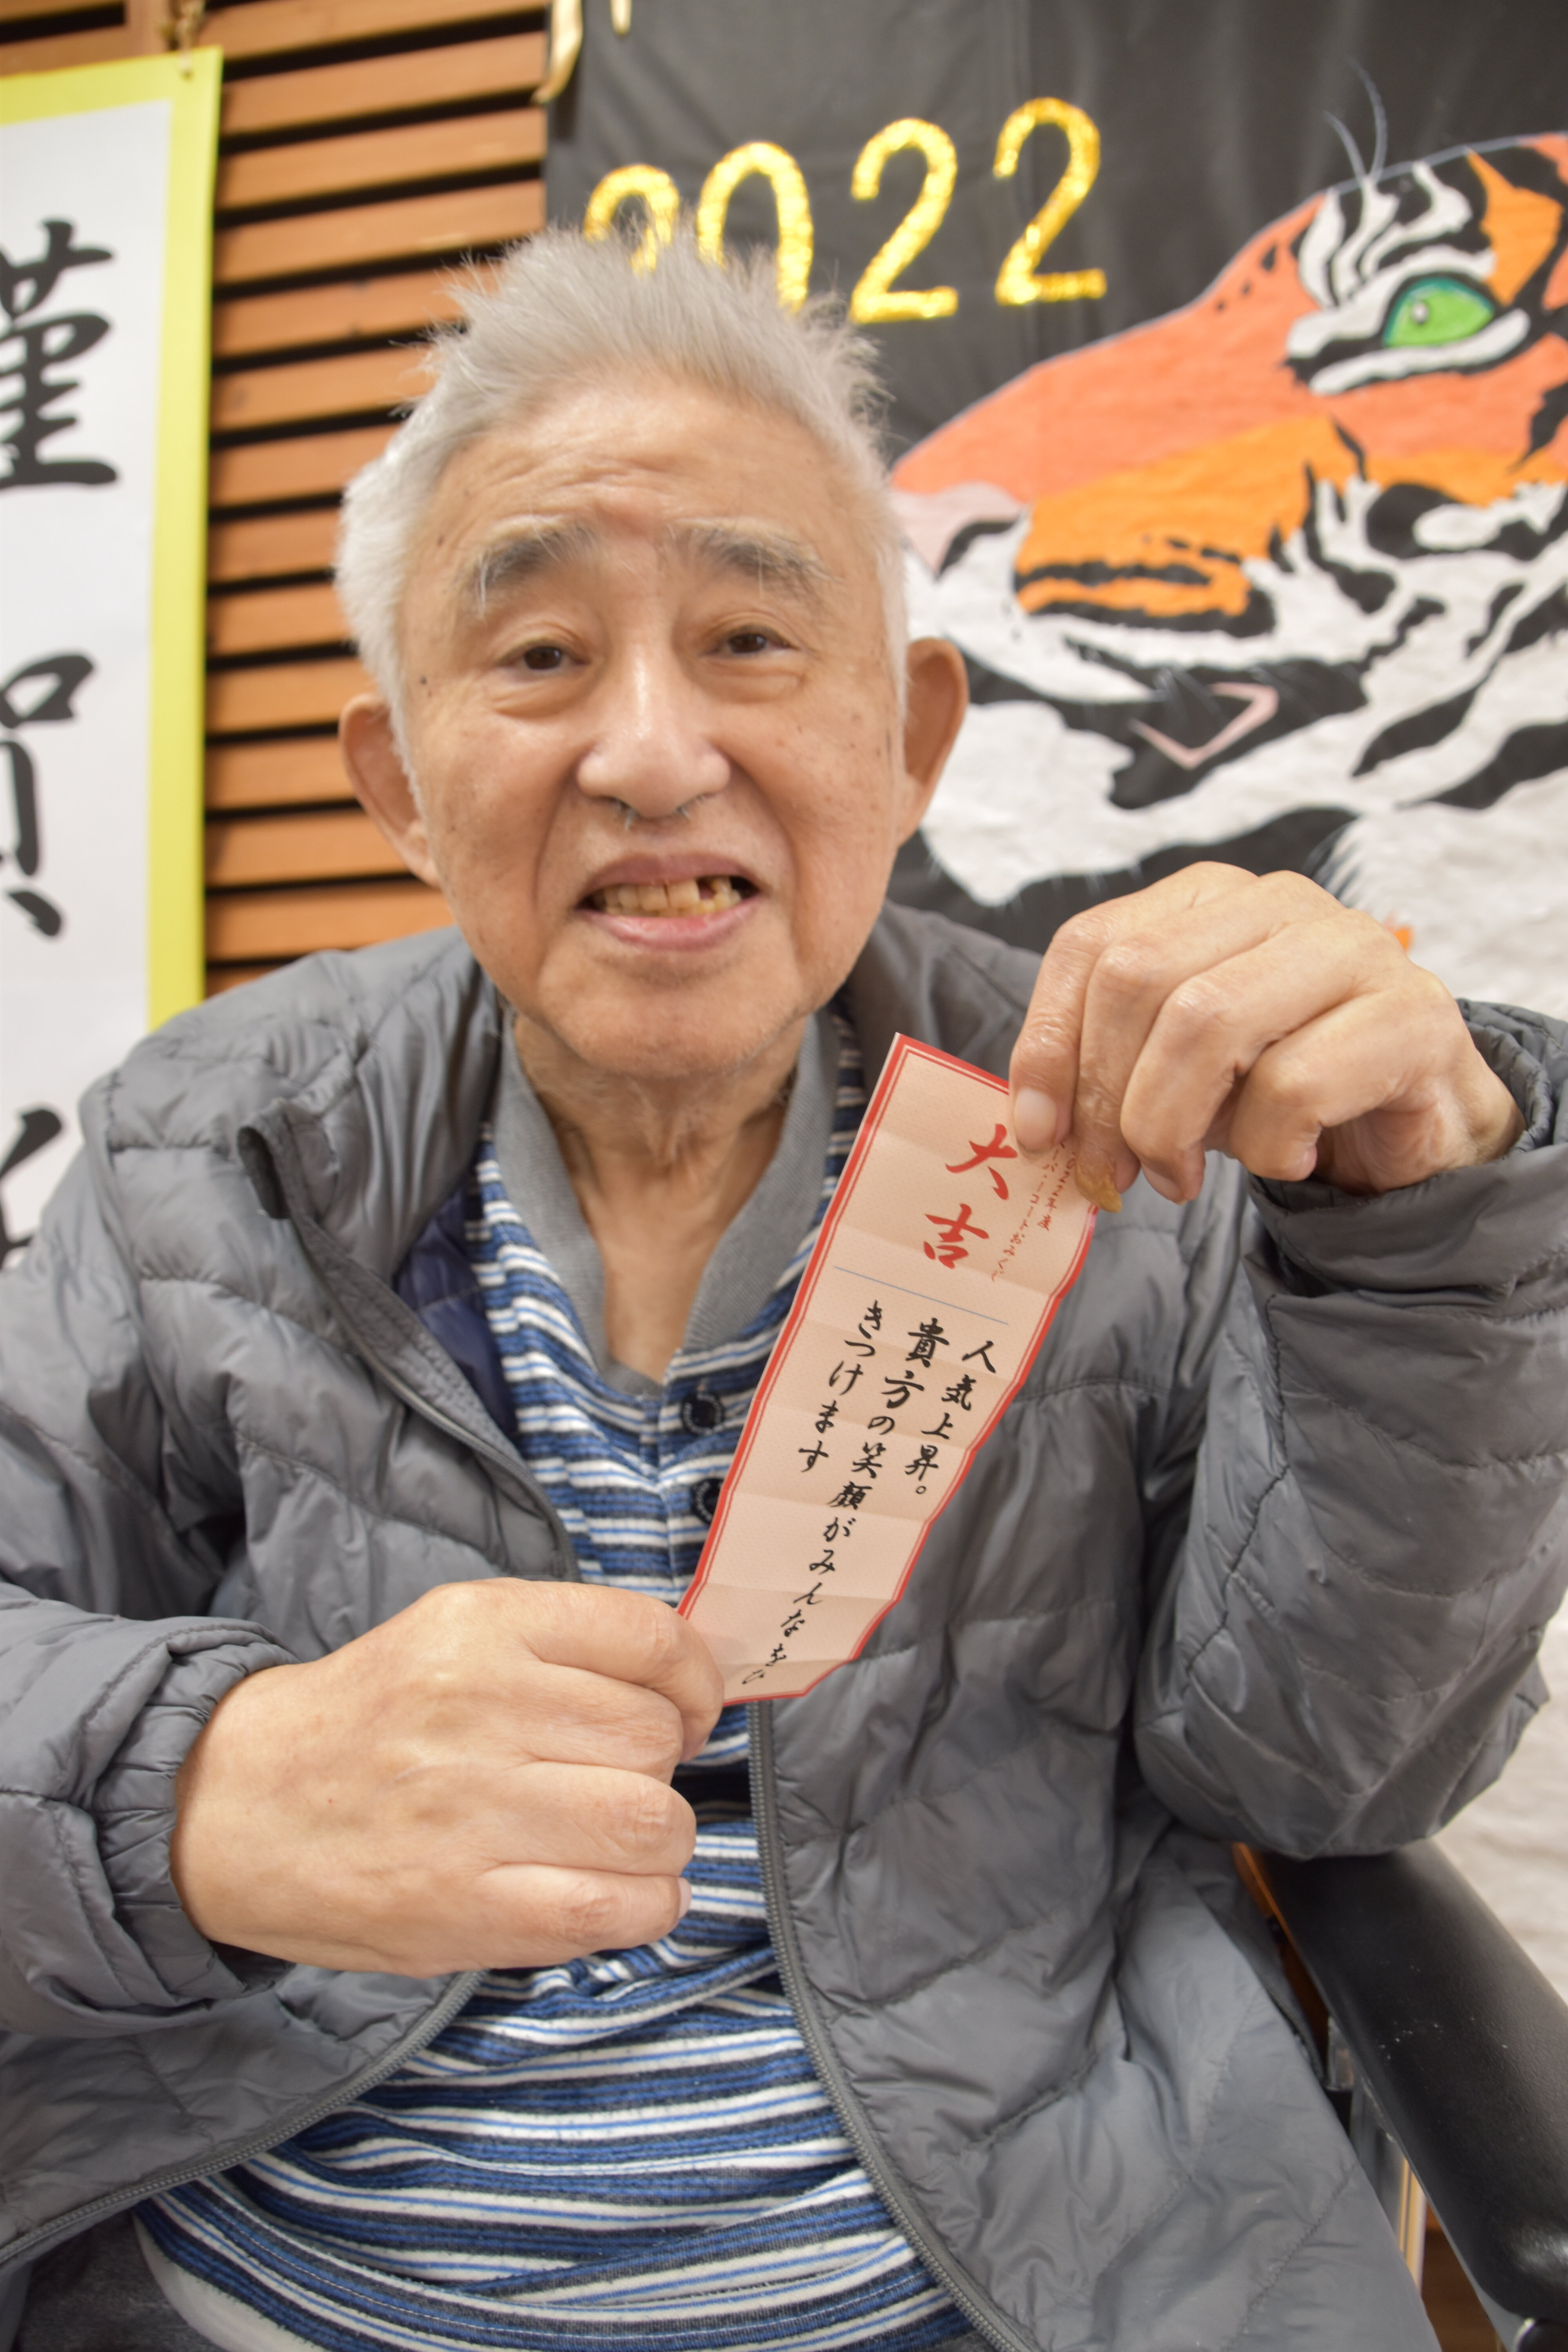 謹
賀
2022
大吉
人気上昇。
貴方の笑顔がみんなをひ
きつけます